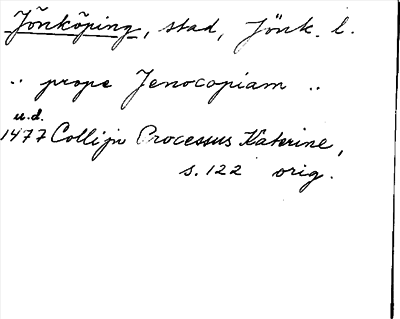 Jönköping, stad, Jönk. l.
.. prope Jenocopiam ..
u.d.
1477 Collijn Processus Katerine,
s. 122 orig.